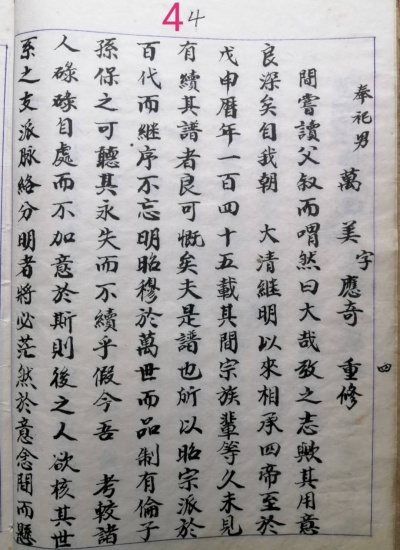 4 4
奉祀男 萬美 字應奇 重修
四
間嘗讀父叙而喟然曰大哉孜之志歟其用意
良深矣自我朝 大清継明以來相承四帝至於
戊申暦年一百四十五載其間宗族輩等久未見
有續其譜者良可慨矣夫是譜也所以昭宗派於
百代而継序不忘明昭穆於萬世而品制有倫子
孫保之可聽其永失而不續乎假今吾 考較諸
人碌碌自處而不加意於斯則後之人欲核其世
系之支派脉絡分明者將必茫然於意念間而懸